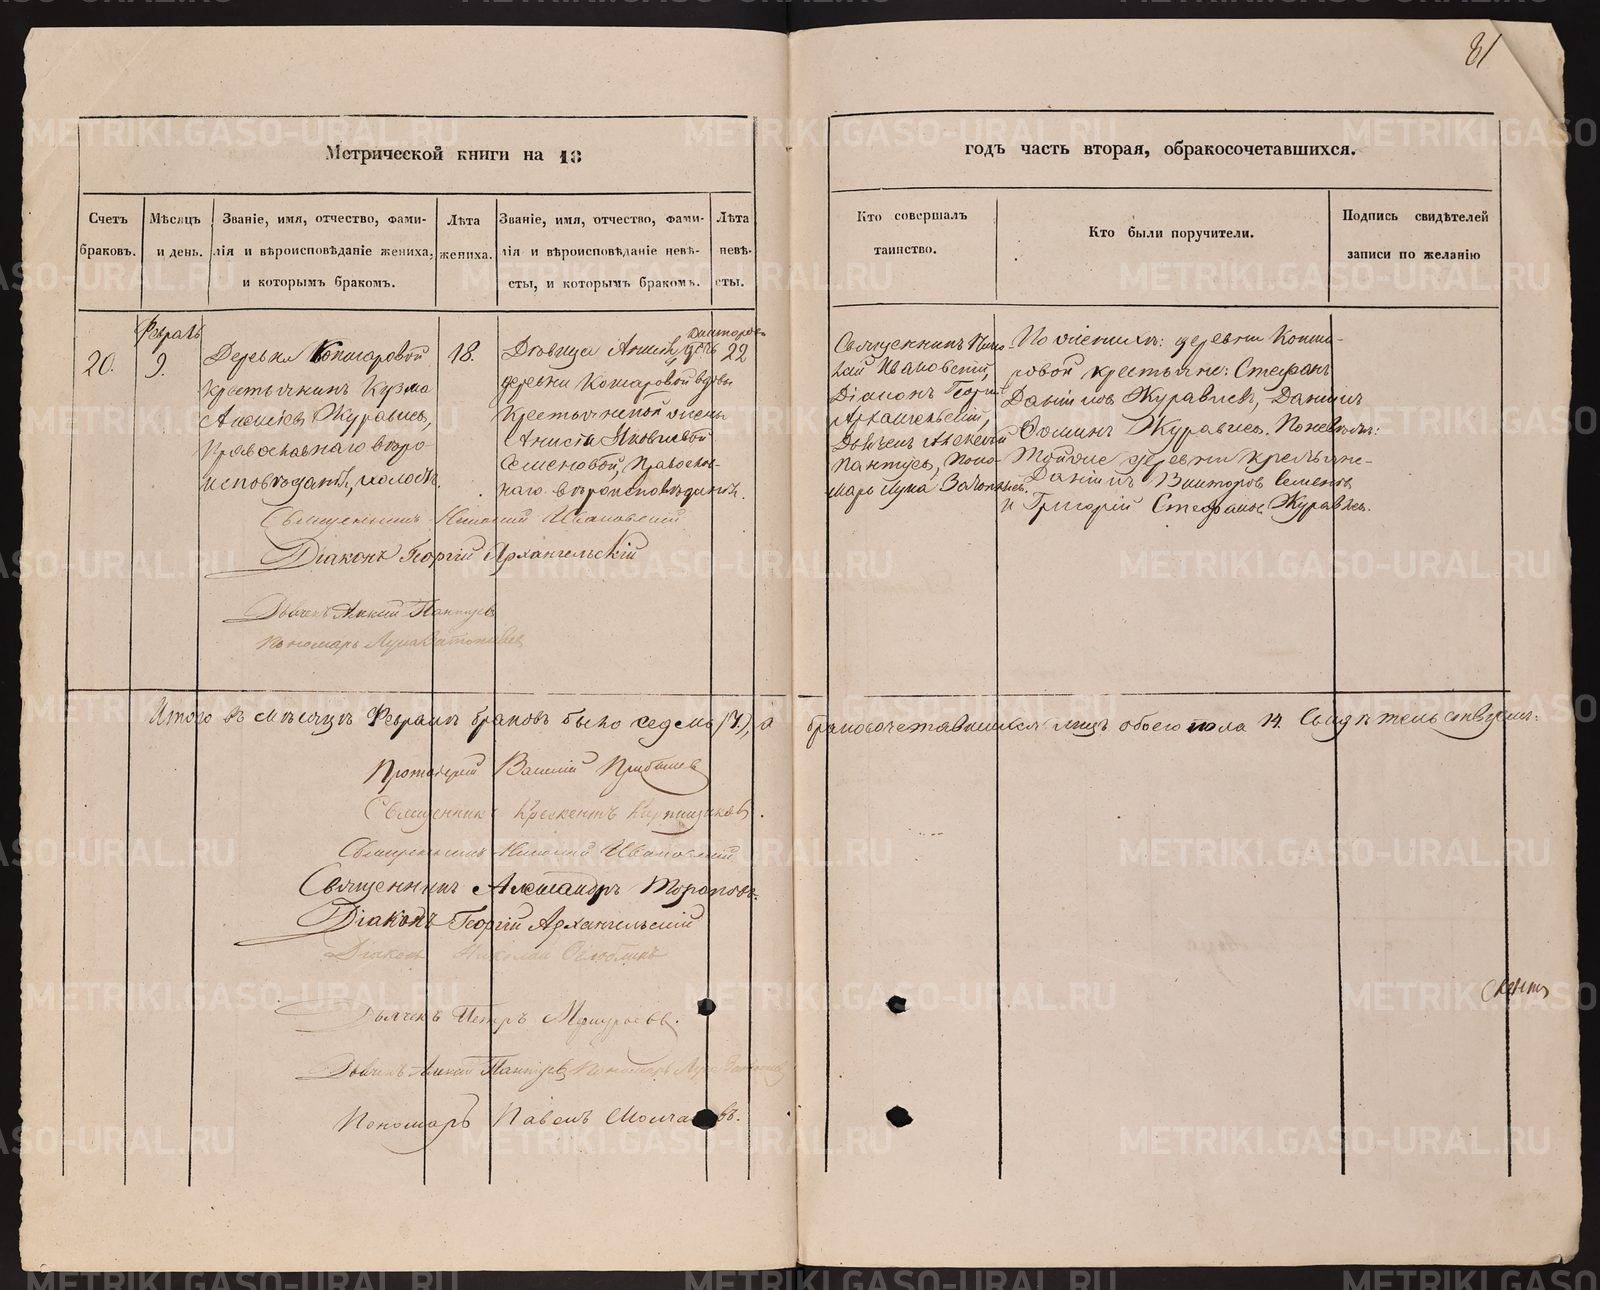 81
Метрической книги на 18
годъ часть вторая, обракосочетавшихся.
Счетъ браковъ.
Мѣсяцъ и день.
Званіе, имя, отчество, фами-
лія и вѣроисповѣданіе жениха,
и которымъ бракомъ.
Лѣта жениха.
Званіе, имя, отчество, фами-
лія и вѣроисповѣданіе невѣ-
сты, и которымъ бракомъ.
Лѣта невѣ-
сты.
Кто совершалъ
таинство.
Кто были поручители.
Подпись свидѣтелей
записи по желанію
Февраль
20.
9.
Деревни Кошаровой
крестьянинъ Кузма
Алексѣевъ Журавлевъ,
православнаго вѣро-
исповѣданія, холостъ.
18.
Дѣвица
деревни Кошаровой вдовы
крестьянской жены
Анисіи Яковлевой
Семеновой, Православ-
наго вѣроисповѣданія.
22
Священникъ Нико-
лай Ивановскій,
Діаконъ Георгій
Архангельскій,
Дьячекъ Алексѣй
Пантуевъ, Поно-
марь Лука
По женихѣ: деревни Коша-
ровой крестьяне: Стефанъ
Даніиловъ Журавлевъ, Даніилъ
Ѳоминъ Журавлевъ. По невѣстѣ:
Тойже деревни крестьяне
Даніилъ Викторовъ Семеновъ
и Григорій Стефановъ Журавлевъ.
Священникъ Николай Ивановскій
Діаконъ Георгій Архангельскій
Дьячекъ Алексѣй Пантуевъ
Пономарь Лука
Итого въ мѣсяцѣ Февралѣ браковъ было седмь (7), а
бракосочетавшихся лицъ обоего пола 14. Свидѣтельствуемъ:
Протоіерей Василій
Священникъ Крескентъ Кирпищиковъ.
Священникъ Николай Ивановскій
Священникъ Александръ Тороповъ.
Діаконъ Георгій Архангельскій
Діаконъ Николай
Дьячекъ Петръ
Дьячекъ Алексѣй Пантуевъ Пономарь Лука
Пономарь Павелъ
METRIKI.GASO-URAL.RU